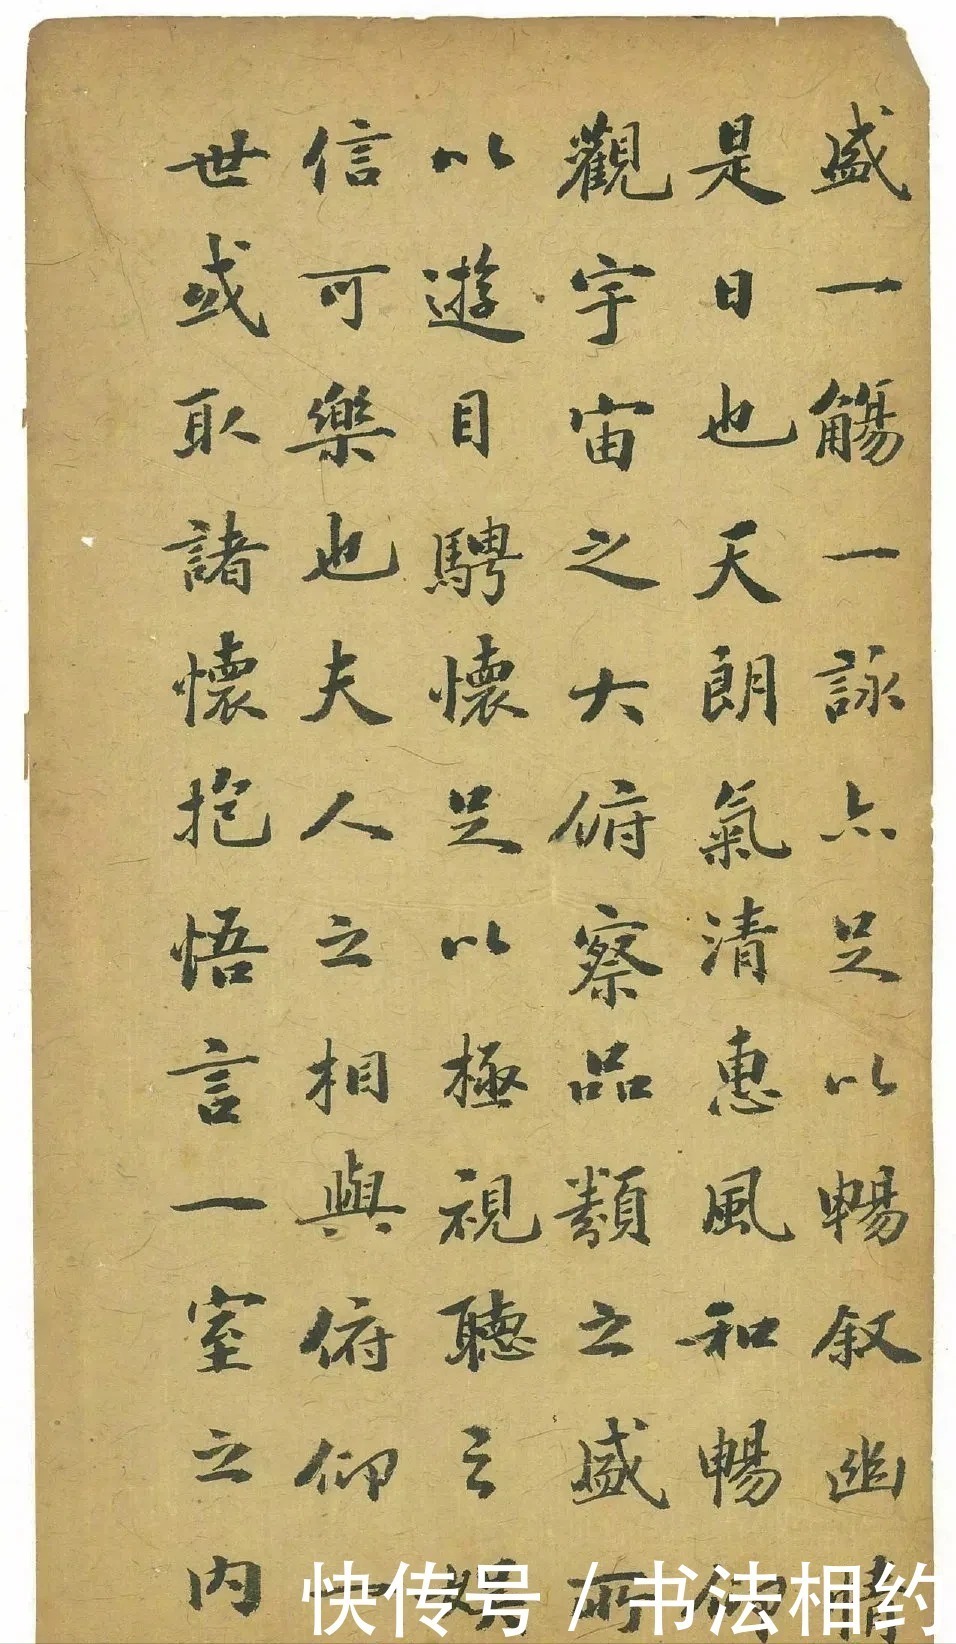 盛一觴一詠亦足以暢叙幽情
是日也天朗氣清惠風和暢仰
觀宇宙之大俯察品類之盛所
以遊目騁懷足以極視聽之娱
信可樂也夫人之相與俯仰一
世或取諸懷抱悟言一室之内
快传号/书法相约